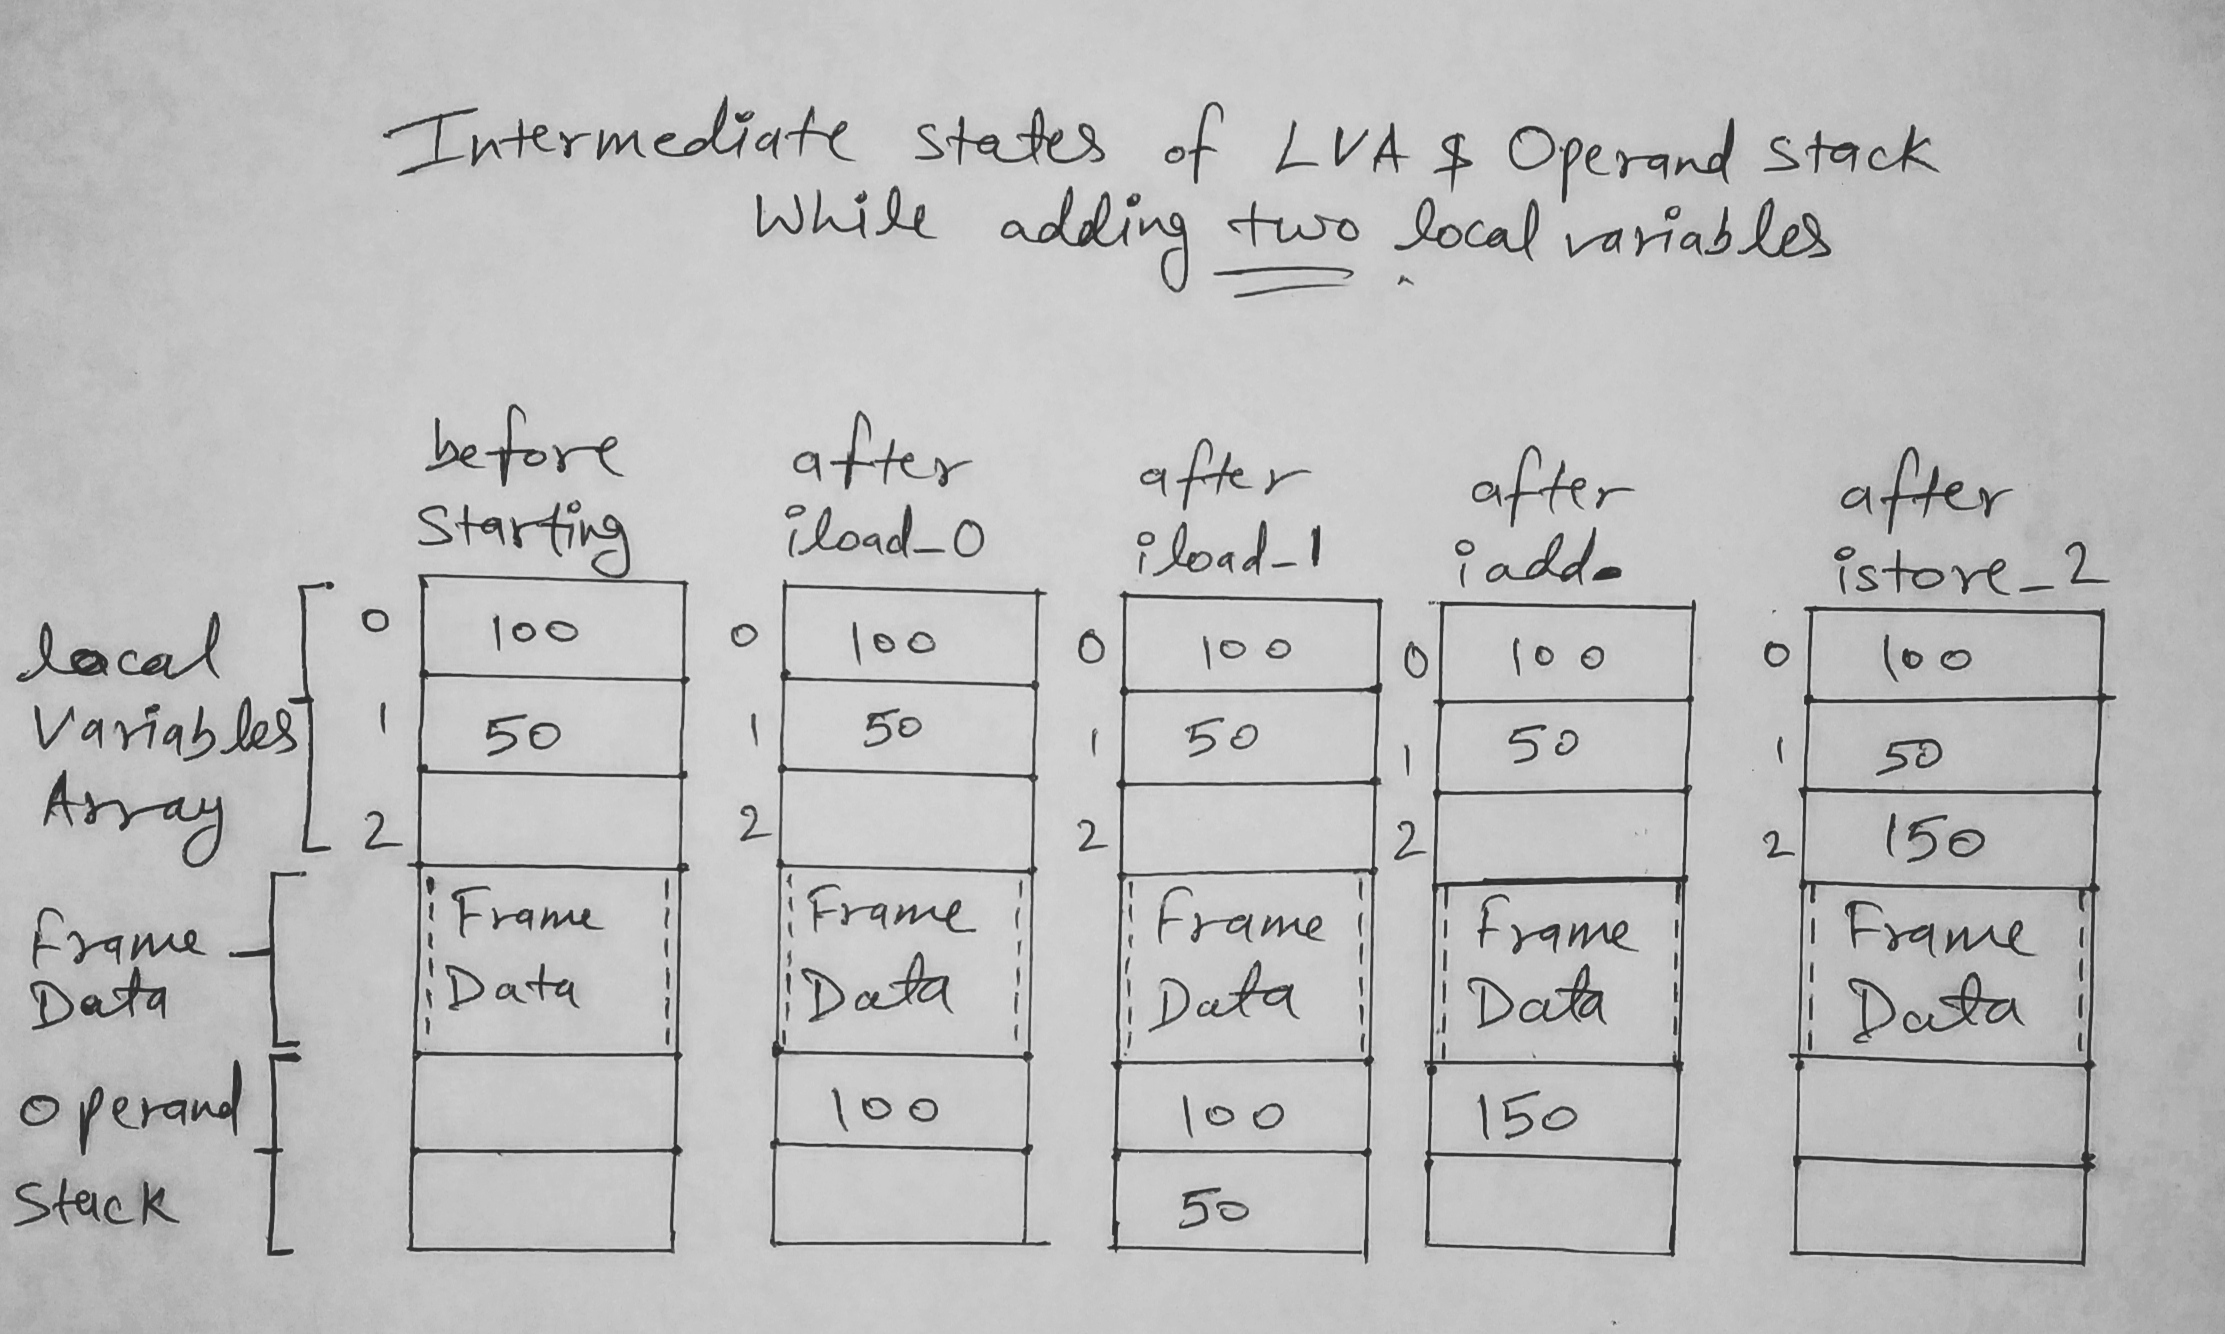 Intermediate states of LVA & Operand stack
While adding two local variables
before
Starting
after
iload_0
after
iload_1
after
iadd
after
istore_2
local
Variables
Array
0 100 0 100 0 100 0 100 0 100
1 50 1 50 1 50 1 50 1 50
2 2 2 2 2 150
Frame
Data
Frame Frame Frame Frame Frame
Data Data Data Data Data
Operand
Stack
100 100 150
50